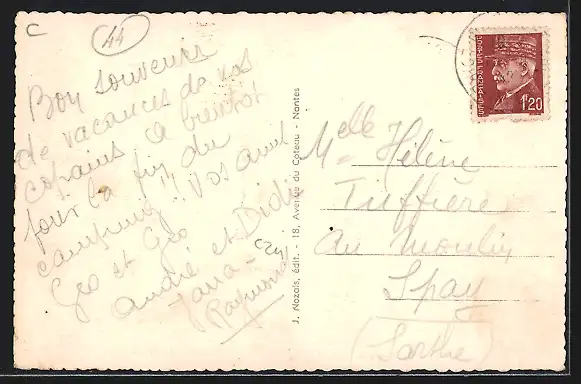 C
44
Bon souvenir
de vacances de vos
copains a bientot
pour la fin du
camping!! Vos amis
Géo et Géo
André et Didi
Jana -
Raymond
J. Nozais, édit. - 18, Avenue du Coteau - Nantes
1f20
Melle Hélène
Tuffière
Au Moulin
Spay
(Sarthe)